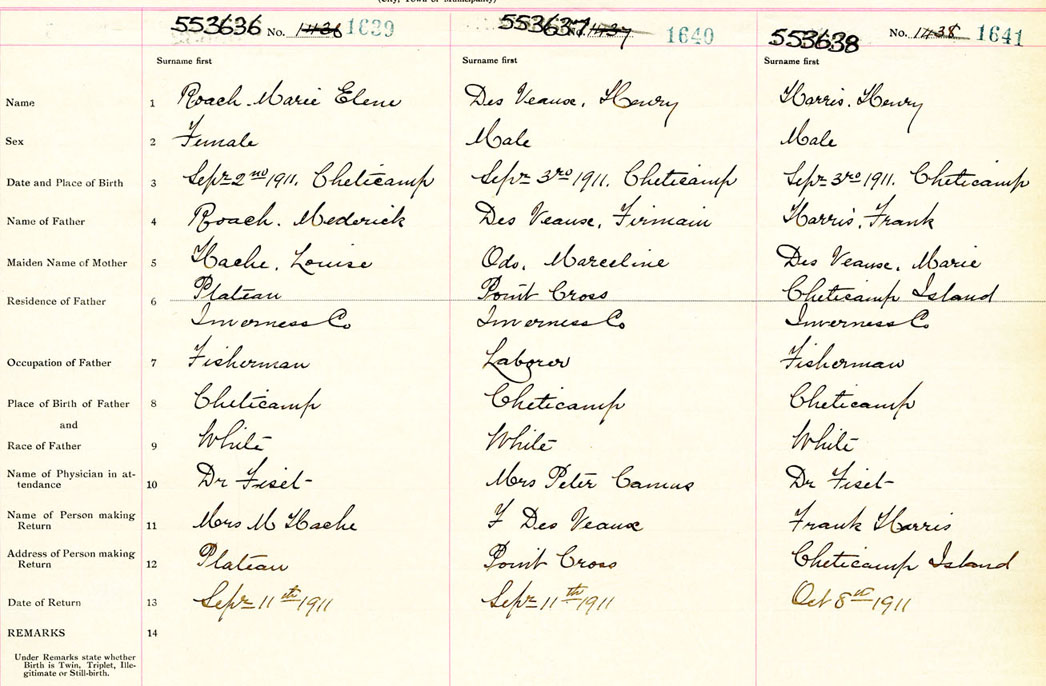 (City, Town or Municipality)
553636 No. 1436 1639 553637 No. 1437 1640 553638 No. 1438 1641
Surname first Surname first Surname first
Name 1 Roach. Marie Elene Des Veaux, Henry Harris, Henry
Sex 2 Female Male Male
Date and Place of Birth 3 Sepr 2nd 1911. Cheticamp Sepr 3rd 1911. Cheticamp Sepr 3rd 1911. Cheticamp
Name of Father 4 Roach. Mederick Des Veaux, Firmain Harris, Frank
Maiden Name of Mother 5 Hache, Louise Odo, Marceline Des Veaux, Marie
Residence of Father 6 Plateau Point Cross Cheticamp Island
Inverness Co Inverness Co Inverness Co
Occupation of Father 7 Fisherman Laborer Fisherman
Place of Birth of Father 8 Cheticamp Cheticamp Cheticamp
and
Race of Father 9 White White White
Name of Physician in at-
tendance 10 Dr Fiset Mrs Peter Camus Dr Fiset
Name of Person making
Return 11 Mrs M Hache F Des Veaux Frank Harris
Address of Person making
Return 12 Plateau Point Cross Cheticamp Island
Date of Return 13 Sepr 11th 1911 Sepr 11th 1911 Oct 8th 1911
REMARKS 14
Under Remarks state whether
Birth is Twin, Triplet, Ille-
gitimate or Still-birth.